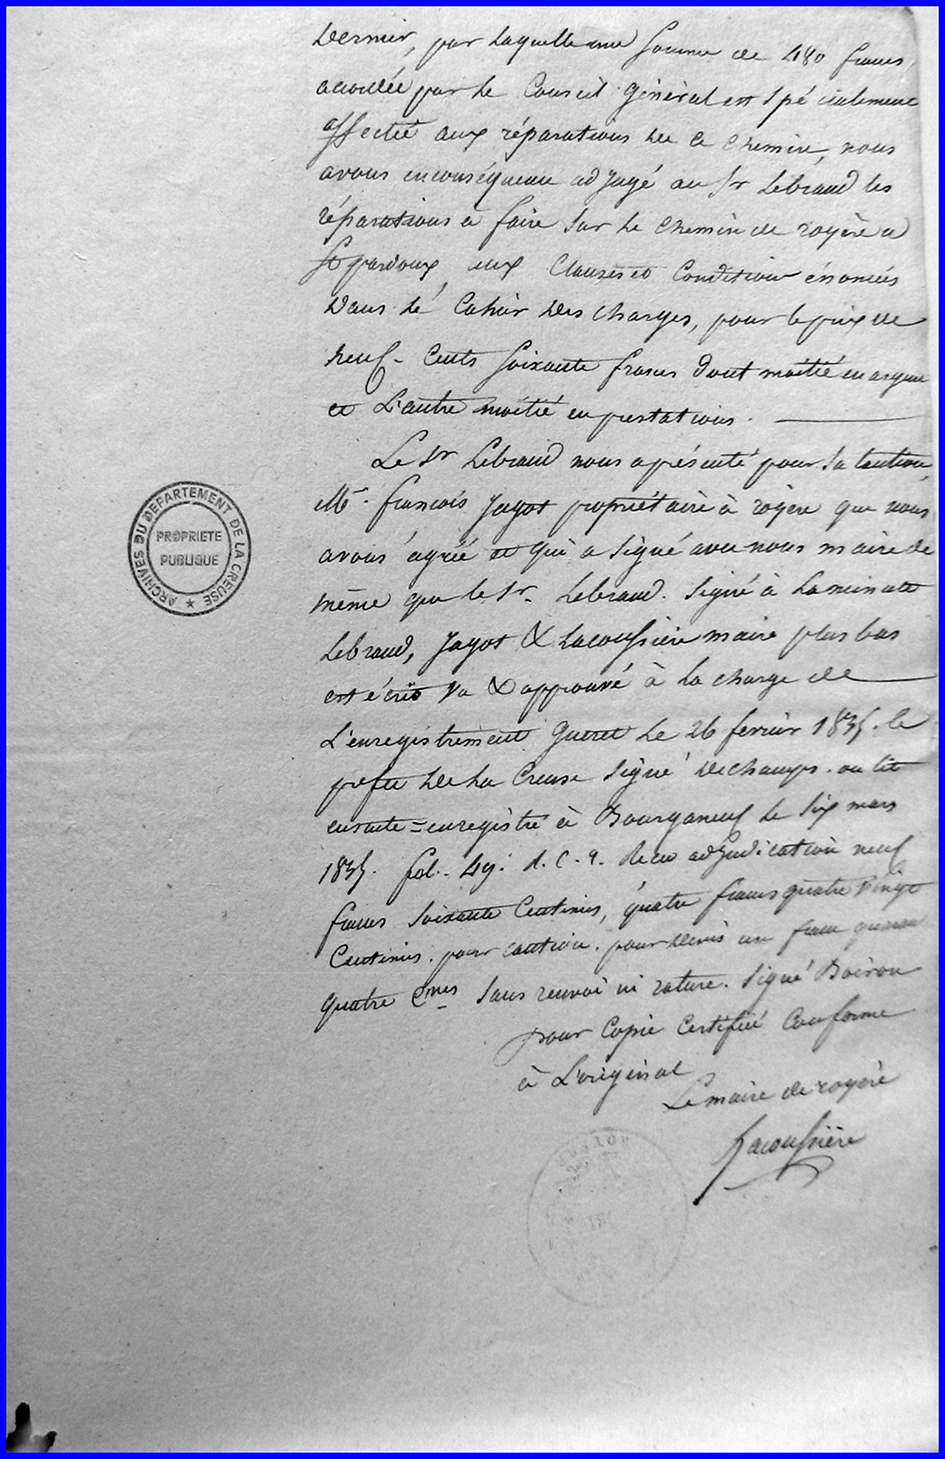 dernier, par laquelle une somme de 480 francs,
accordée par le Conseil général est spécialement
affectée aux réparations de ce chemin, nous
avons en conséquence adjugé au Sr Lebraud les
réparations à faire sur le chemin de royère a
St pardoux, aux Clauses et Condition énoncées
Dans le Cahier des charges, pour le prix de
neuf-Cents soixante francs dont moitié en argent
et L'autre moitié en prestations.
Le Sr Lebraud nous a présenté pour sa Caution,
Mr. françois Jagot propriétaire à royère que nous
avons agréé et qui a signé avec nous maire de
même que le Sr. Lebraud. signé à La minute
Lebraud, Jagot & Lacoussière maire plus bas
est écrit Vu & approuvé à la charge de
L'enregistrement Gueret Le 26 fevrier 1835. le
prefet de La Creuse signé Dechamps. on lit
ensuite = enregistré à Bourganeuf le six mars
1835. fol. 49. r. C. 9. Recu adjudication neuf
francs soixante Centimes, quatre francs quatre vingt
Centimes. pour caution. pour devis un franc
quatre Cmes sans renvoi ni rature. signé Boiron
pour Copie Certifiée Conforme
à L'original
Le maire de royère
Lacoussière
ARCHIVES DU DEPARTEMENT DE LA CREUSE
PROPRIETE
PUBLIQUE